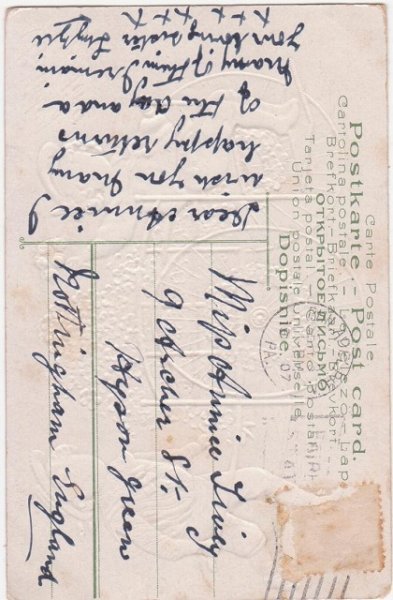 Carte Postale
Postkarte. - Post card.
Cartolina postale - Levelező-Lap
Brefkort-Briefkaart-Brevkort
ОТКРЫТОЕ ПИСЬМО
Tarjeta postal
Union postale universelle
Dopisnice.
PA.
07
Dear Annie I
wish you Many
happy returns
of the day and a
many of them I remain
your loving sister Lizzie
x x x x
Miss Annie
9 Archer St.
Hyson Green
Nottingham England